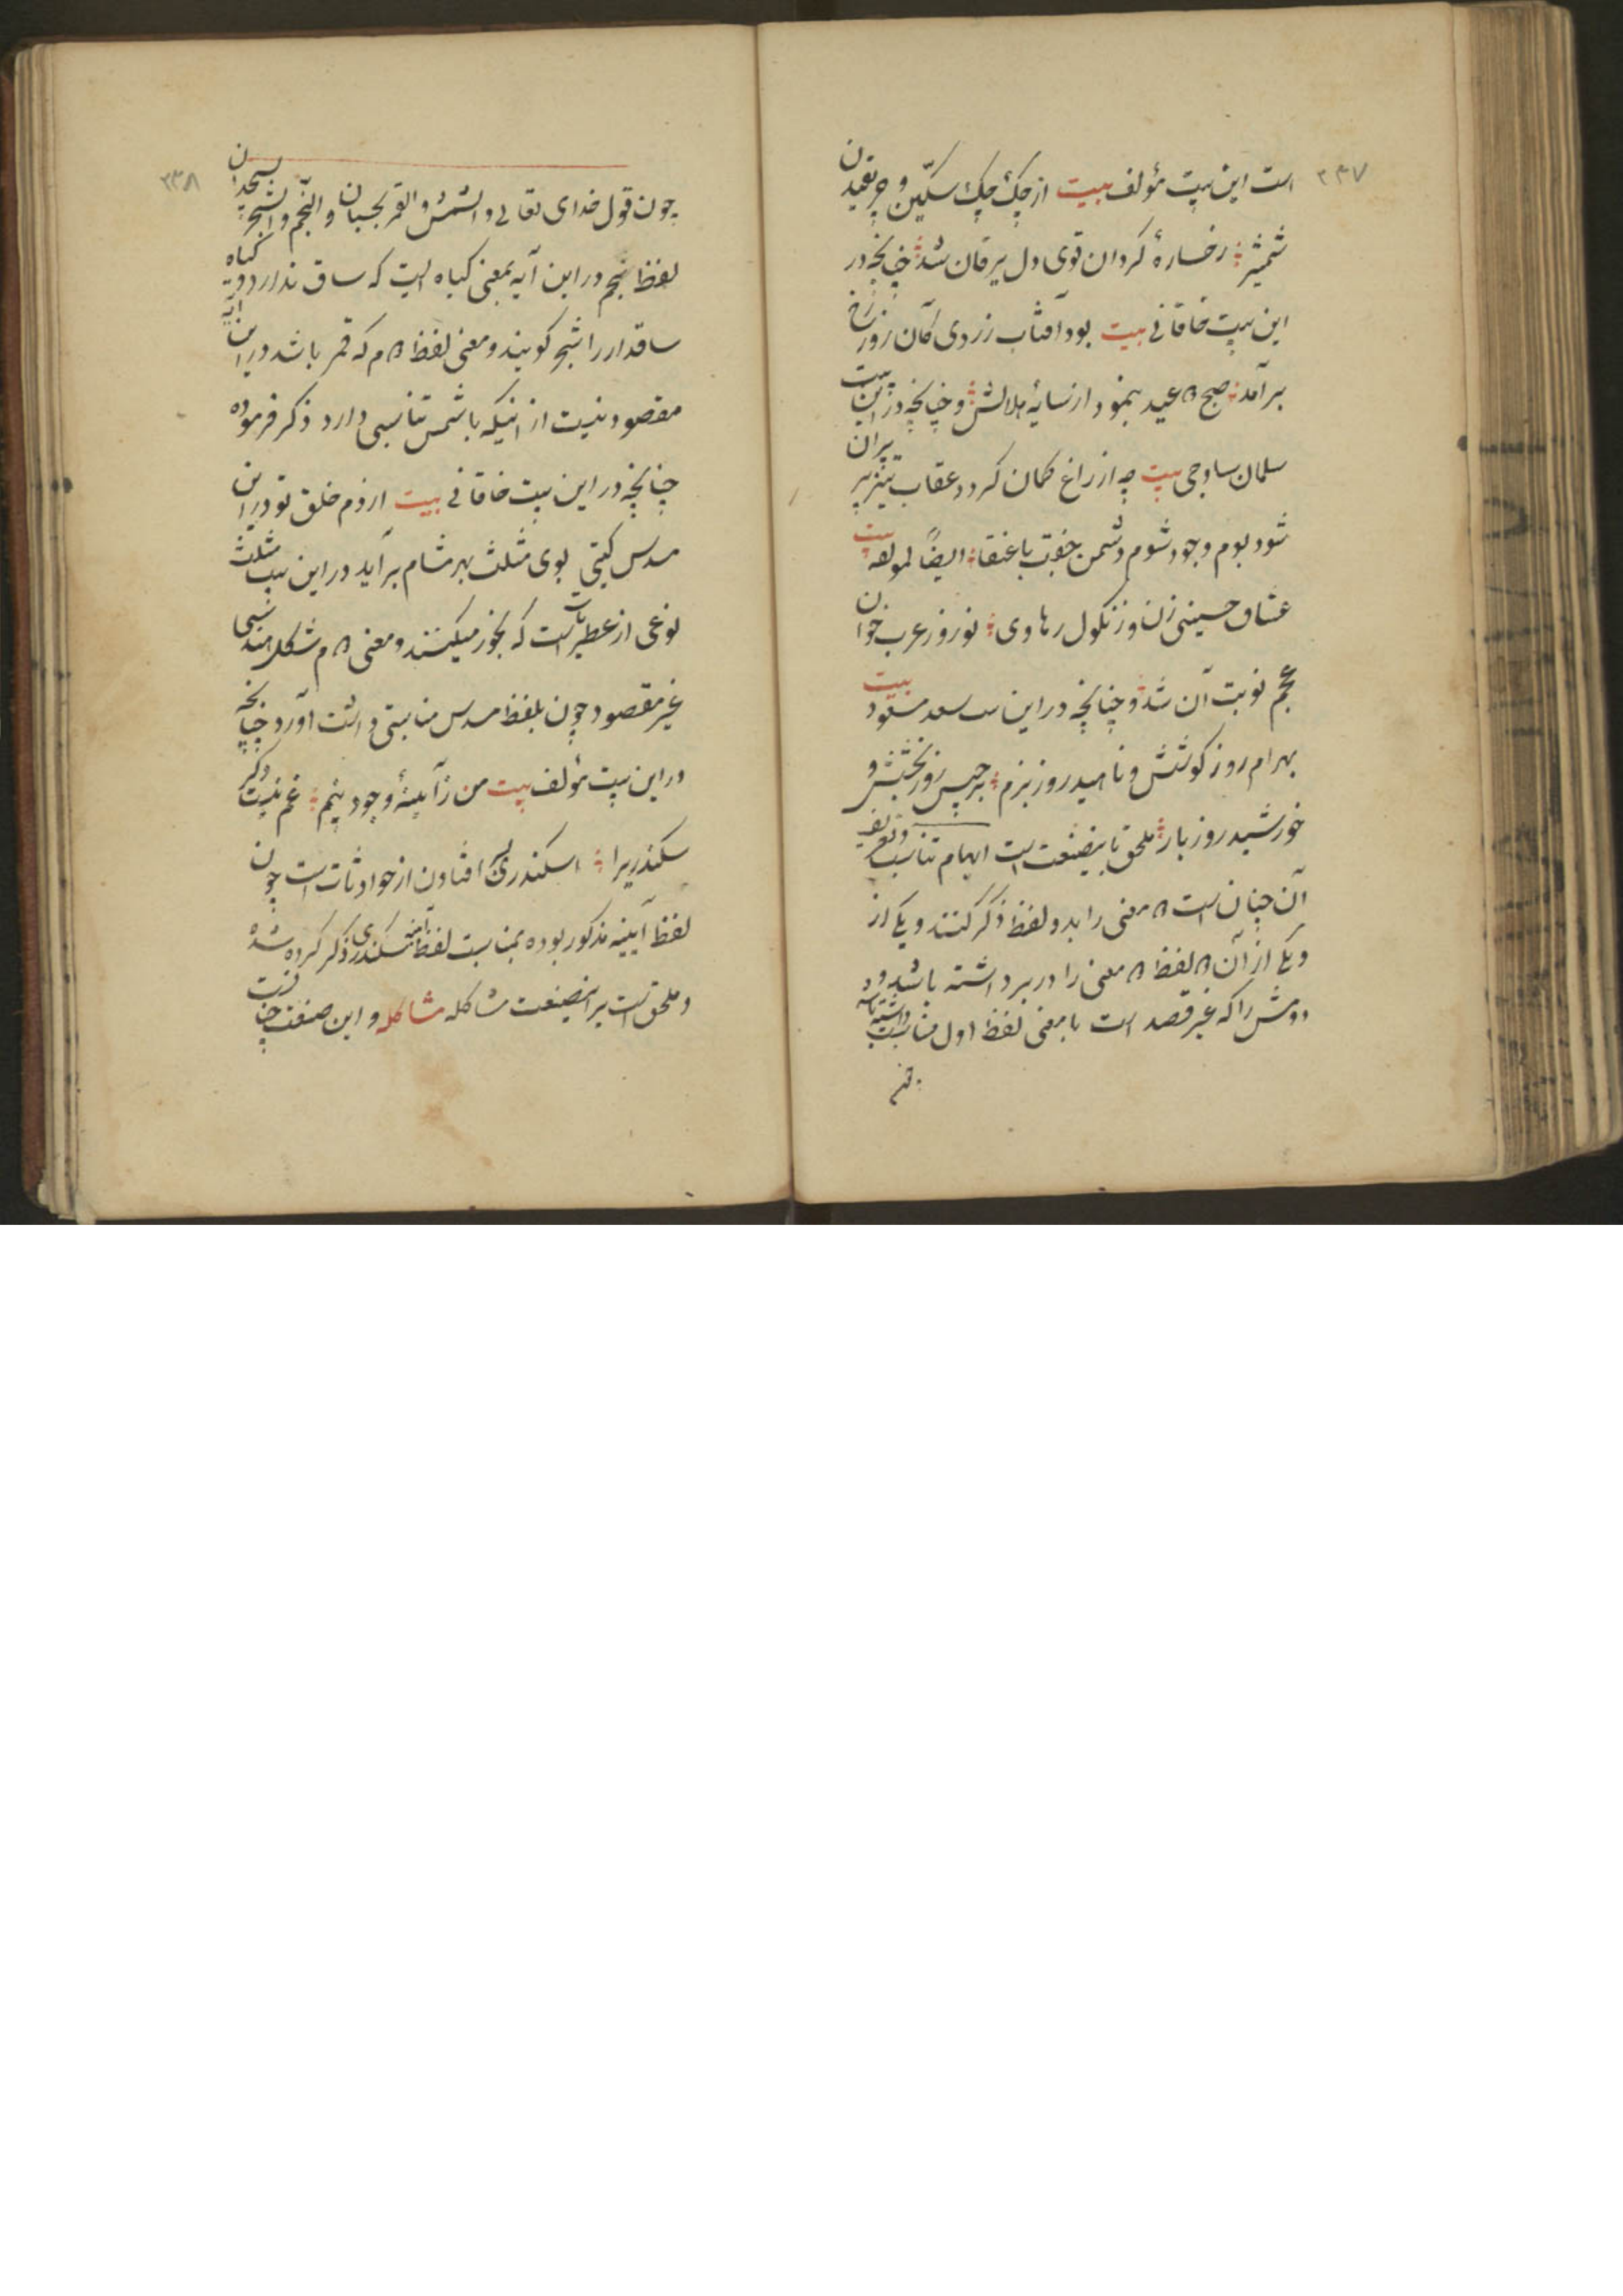 ۲۳۷
است این بیت مؤلف بیت از چک چک سکین و چر
شمشیر رخساره گردان قوی دل یرقان شد چنانچه در
این بیت خاقانی بیت بود آفتاب زردی کان روز رخ
برآمد صبح دوم عید بنمود از سایه هلالش و چنانچه در این بیت
سلمان ساوجی بیت چه از زاغ کمان گردد عقاب تیز پر پران
شود بوم وجود شوم دشمن جفت با عنقا ایضا لمؤلفه بیت
عشاق حسینی زن و زنکوله رهاوی نوروز عرب خوان
عجم نوبت آن شد و چنانچه در این بیت سعد مسعود بیت
بهرام روز کوشش و ناهید روز بزم برجیس روز بخشش و
خورشید روز بار ملحق باینصنعت است ایهام تناسب و تعریف
آن چنان است دو معنی را بدو لفظ ذکر کنند و یکی از
و یکی از آن دو لفظ دو معنی را در بر داشته باشد و
دومش را که غیر قصد است با معنی لفظ اول مناسبت داشته باشد
۲۳۸
چون قول خدای تعالی و الشمس و القمر بحسبان و النجم و الشجر یسجدان
لفظ نجم در این آیه بمعنی کیاه است که ساق ندارد و کیاه
ساقدار را شجر کویند و معنی لفظ دوم که قمر باشد در این آیه
مقصود نیست از اینکه با شمس تناسبی دارد ذکر فرموده
چنانچه در این بیت خاقانی بیت از دم خلق تو در این
مسدس کیتی بوی مثلث بهر مشام برآید در این بیت مثلث
نوعی از عطریات است که بخور میکنند و معنی دوم شکل هندسی
غیر مقصود چون بلفظ مسدس مناسبتی داشت آورد چنانچه
در این بیت مؤلف بیت من ز آیینه وجود بینم غم نیست ذکر
سکندریرا اسکندری افتادن از حوادثات است چون
لفظ آیینه مذکور بوده بمناسبت لفظ آینه سکندری ذکر کرده شده
و ملحق است بر اینصنعت مشاکله مشاکله و این صنعت چنانست